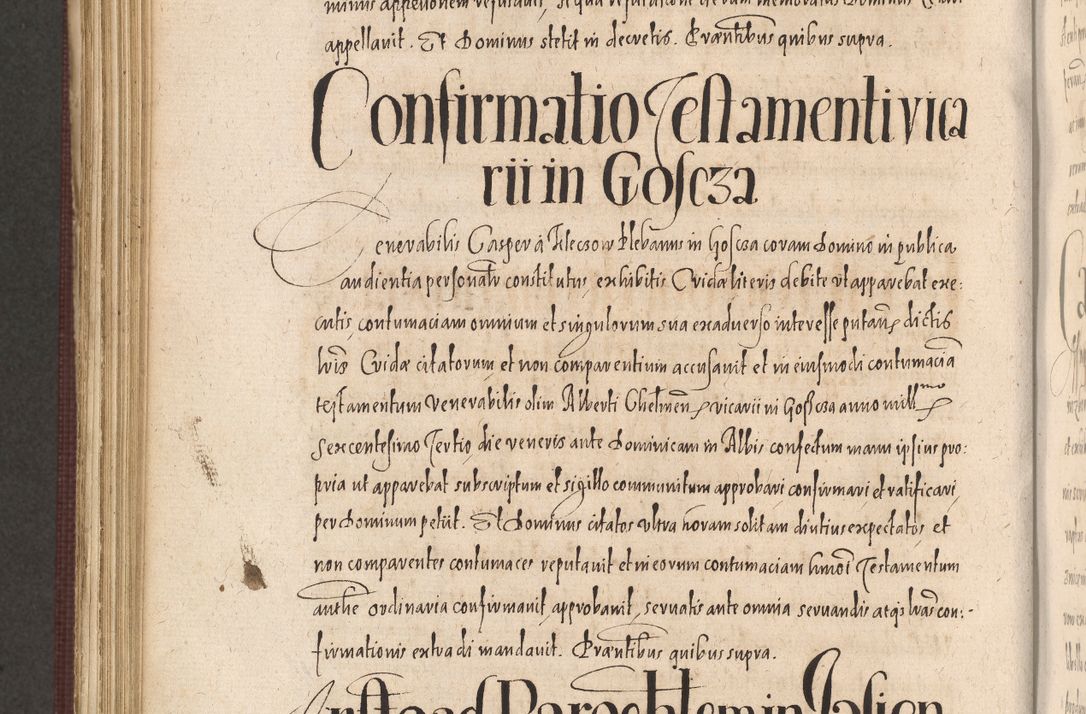 appellavit. Et Dominus stetit in decretis. Præntibus quibus supra.
Confirmatio Testamenti vica
rii in Goscza
Venerabilis Casper à Kleczow Plebanus in Goscza coram Domino in publica
audientia personalr constitutus, exhibitis Cridæ literis debite ut apparebat exe:
cutis, contumaciam omnium et singulorum sua exadverso interesse putan dictis
lris Cridæ citatorum et non comparentium accusavit et in eiusmodi contumaciā
testamentum Venerabilis olim Alberti Chelmen vicarii in Gosscza anno millmo
Sexcentesimo Tertio die veneris ante Dominicam in Albis confectum manu ipsius pro:
pria ut apparebat subscriptum et sigillo communitum approbari confirmari et ratificari
per Dominum petiit. Et Dominus citatos ultra horam solitam diutius expectatos et
non comparentes contumaces reputavit et in eorum contumaciam hmōi Testamentum
authe ordinaria confirmavit approbavit, servatis ante omnia servandis atq; lras con:-
firmationis extradi mandavit. Præntibus quibus supra.